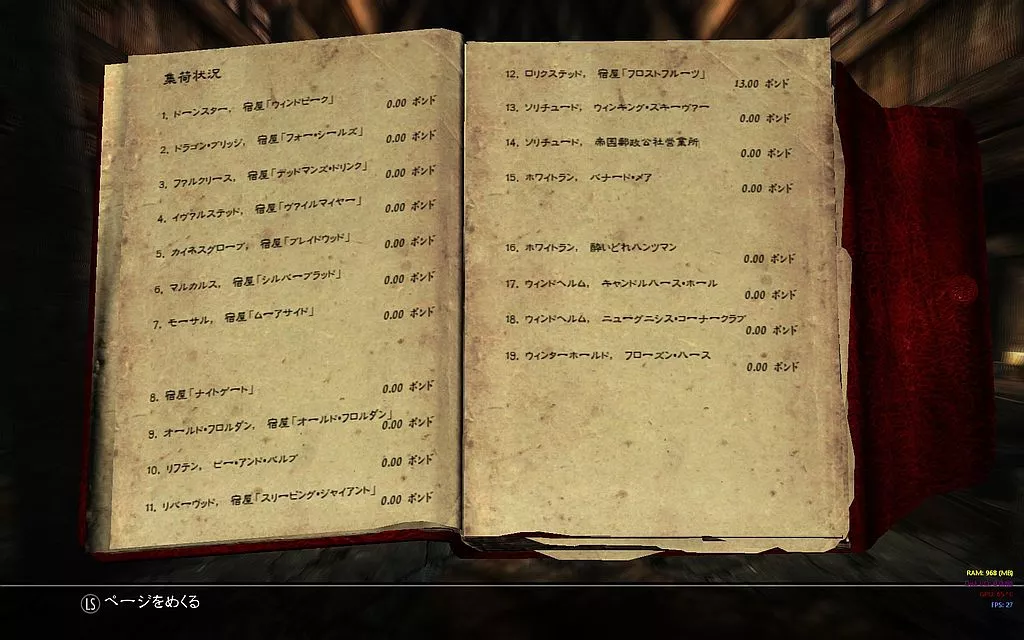 集荷状況
1. ドーンスター, 宿屋「ウィンドピーク」 0.00 ポンド
2. ドラゴン・ブリッジ, 宿屋「フォー・シールズ」 0.00 ポンド
3. ファルクリース, 宿屋「デッドマンズ・ドリンク」 0.00 ポンド
4. イヴァルステッド, 宿屋「ヴァイルマイヤー」 0.00 ポンド
5. カイネスグローブ, 宿屋「ブレイドウッド」 0.00 ポンド
6. マルカルス, 宿屋「シルバーブラッド」 0.00 ポンド
7. モーサル, 宿屋「ムーアサイド」 0.00 ポンド
8. 宿屋「ナイトゲート」 0.00 ポンド
9. オールド・フロルダン, 宿屋「オールド・フロルダン」 0.00 ポンド
10. リフテン, ビー・アンド・バルブ 0.00 ポンド
11. リバーウッド, 宿屋「スリーピング・ジャイアント」 0.00 ポンド
12. ロリクステッド, 宿屋「フロストフルーツ」 13.00 ポンド
13. ソリチュード, ウィンキング・スキーヴァー 0.00 ポンド
14. ソリチュード, 帝国郵政公社営業所 0.00 ポンド
15. ホワイトラン, バナード・メア 0.00 ポンド
16. ホワイトラン, 酔いどれハンツマン 0.00 ポンド
17. ウィンドヘルム, キャンドルハース・ホール 0.00 ポンド
18. ウィンドヘルム, ニューグニシス・コーナークラブ 0.00 ポンド
19. ウィンターホールド, フローズン・ハース 0.00 ポンド
RAM: 968 (MB)
FPS: 27
LS ページをめくる